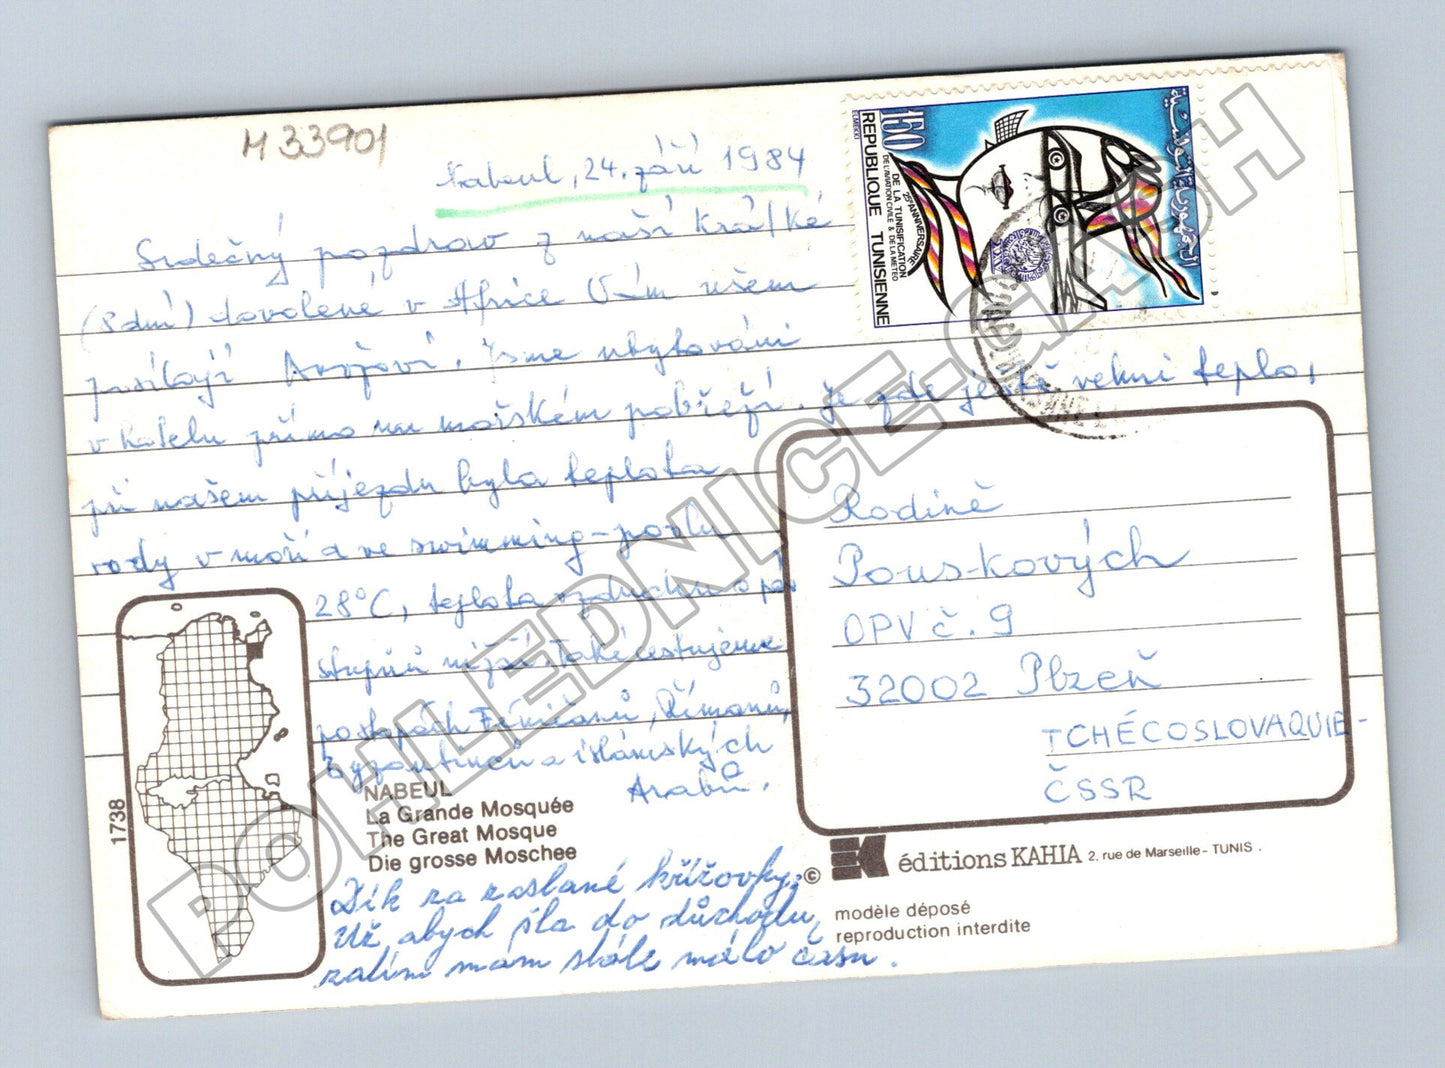 M 33901
Nabeul, 24. září 1984
Srdečný pozdrav z naší krátké
(8 dní) dovolené v Africe Vám všem
posílají. Jsme ubytováni
v hotelu přímo na mořském pobřeží. Je zde ještě velmi teplo,
při našem příjezdu byla teplota
vody v moři a ve swimming-poolu
28°C, teplota vzduchu o pár
stupňů nižší. Také cestujeme
po stopách Féničanů, Římanů,
Byzantinců a islámských
Arabů.
Dík za zaslané křížovky.
Už abych šla do důchodu,
zatím mám stále málo času.
150
EL MEKKI
REPUBLIQUE TUNISIENNE
25e ANNIVERSAIRE
DE LA TUNISIFICATION
DE L'AVIATION CIVILE & DE LA METEO
الجمهورية التونسية
Rodině
Pouskových
OPV č. 9
32002 Plzeň
TCHÉCOSLOVAQUIE-
ČSSR
1738
NABEUL
La Grande Mosquée
The Great Mosque
Die grosse Moschee
© éditions KAHIA 2, rue de Marseille - TUNIS.
modèle déposé
reproduction interdite
POHLEDNICE-CASH